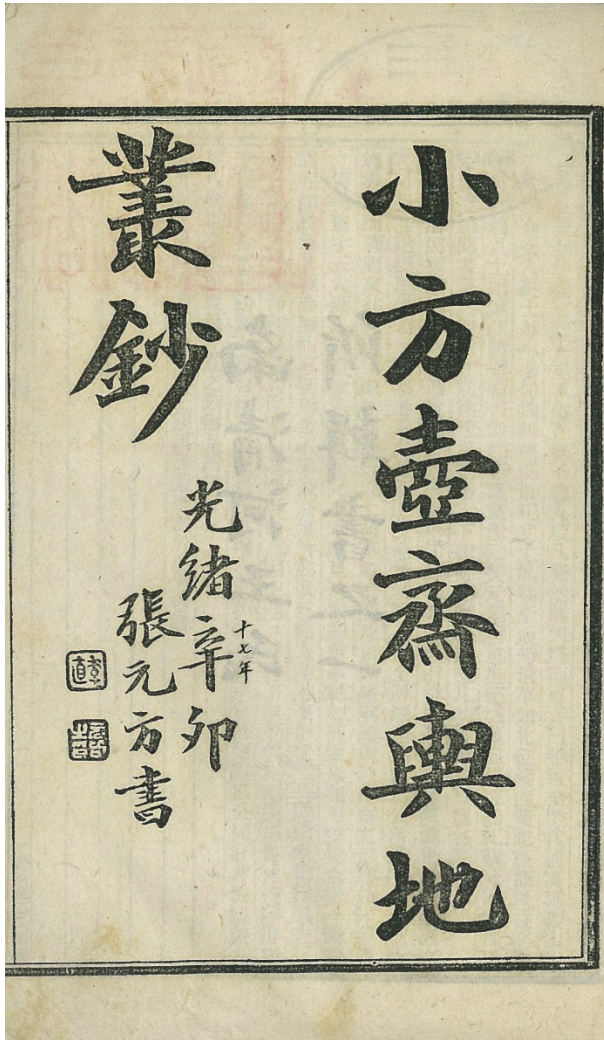 小方壺齋輿地
叢鈔
光緒辛卯
十七年
張元方書